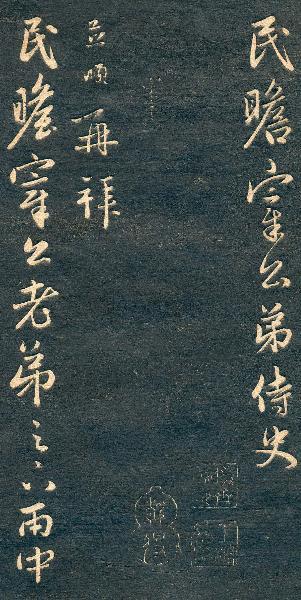 民瞻宰公弟侍史
並順
再拜
民瞻宰公老弟
雨中